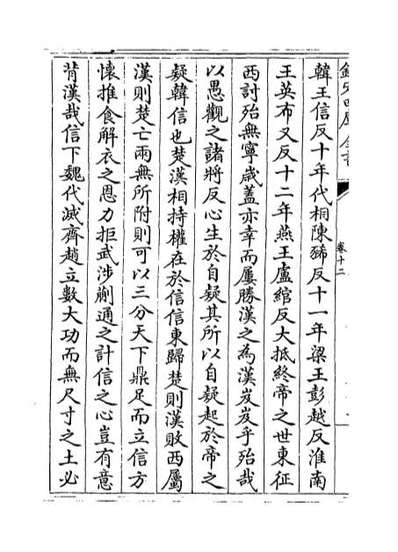 欽定四庫全書
卷十二
韓王信反十年代相陳豨反十一年梁王彭越反淮南
王英布又反十二年燕王盧綰反大抵終帝之世東征
西討殆無寧歲蓋亦幸而屢勝漢之為漢岌岌乎殆哉
以愚觀之諸將反心生於自疑其所以自疑起於帝之
疑韓信也楚漢相持權在於信信東歸楚則漢敗西屬
漢則楚亡兩無所附則可以三分天下鼎足而立信方
懷推食解衣之恩力拒武涉蒯通之計信之心豈有意
背漢哉信下魏代滅齊趙立數大功而無尺寸之土必